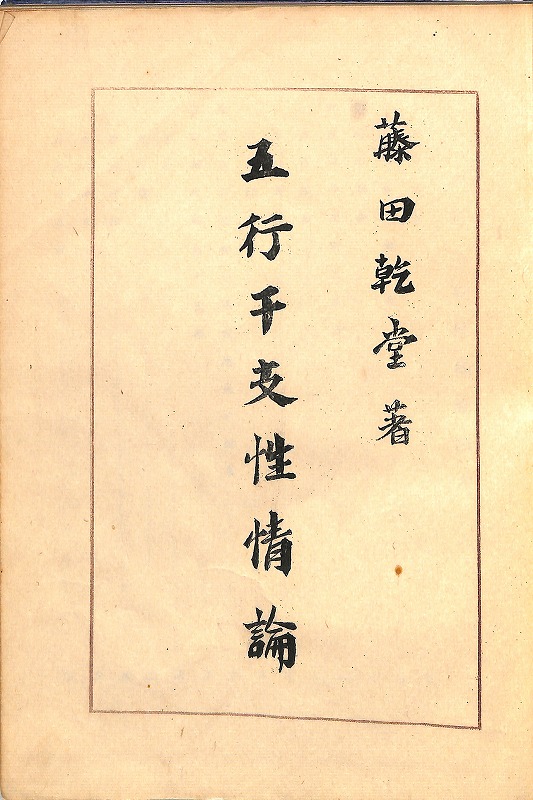 藤田乾堂著
五行干支性情論